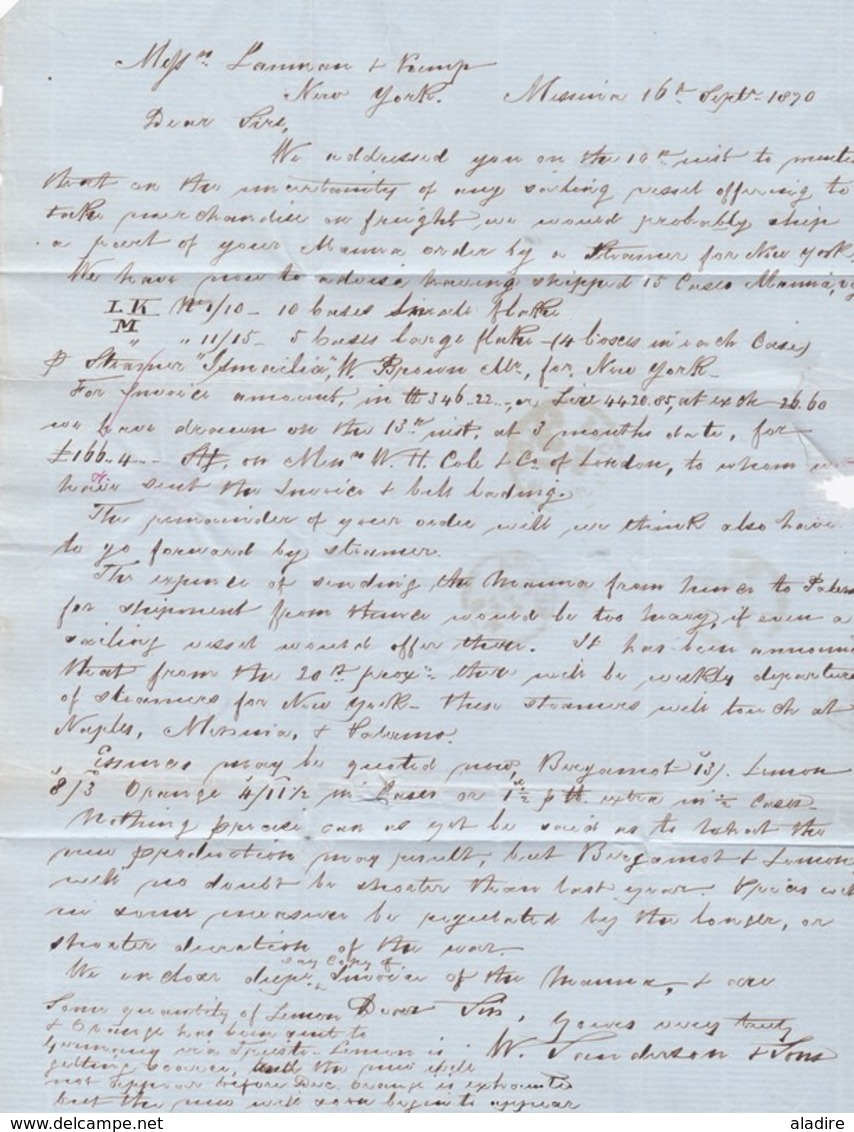 Messrs Lanman & Kemp
New York. Messina 16th Septr 1870
Dear Sirs,
We addressed you on the 10th inst to
that on the uncertainity of any sailing vessel offering to
take merchandise on freight, we would probably ship
a part of your Manna order by a Steamer for New York.
We have now to advise having shipped 15 Cases Manna,
LK No 1/10 - 10 Cases Small flake
M " " 11/15 - 5 Cases large flake - (4 boxes in each Case)
P Steamer "Ismailia", W Brown Mr, for New York -
For Invoice amount, in 346..22.., or Lire 4420.85, at exch 26.60
we have drawn on the 13th inst, at 3 months date, for
£166..4.. on Messrs W. H. Cole & Co of London, to whom we
have sent the Invoice & bill lading.
The remainder of your order will we think also have
to go forward by steamer.
The expence of sending the Manna from hence to
for shipment from thence would be too heavy, if even a
sailing vessel would offer there. It has been
that from the 20th proxo there will be weekly
of steamers for New York - these steamers will touch at
Naples, Messina, & Palermo.
Essences may be quoted now, Bergamot 13/. Lemon
8/3 Orange 4/11 1/2 in Cases or 1 1/2d p lb. extra in 1/2 Cases.
Nothing precise can as yet be said as to what the
new production may result, but Bergamot & Lemon
will no doubt be shorter than last year. Prices will
in some measure be regulated by the longer, or
shorter duration of the war.
say Copy of
We enclose Invoice of the Manna, & are
Dear Sirs,
Yours very truly
W. Sanderson & Sons
Some quantity of Lemon
& Orange has been sent to
Germany via Trieste - Lemon is
getting scarce, and the new will
not appear before Dec. Orange is
but the new will soon begin to appear
aladire